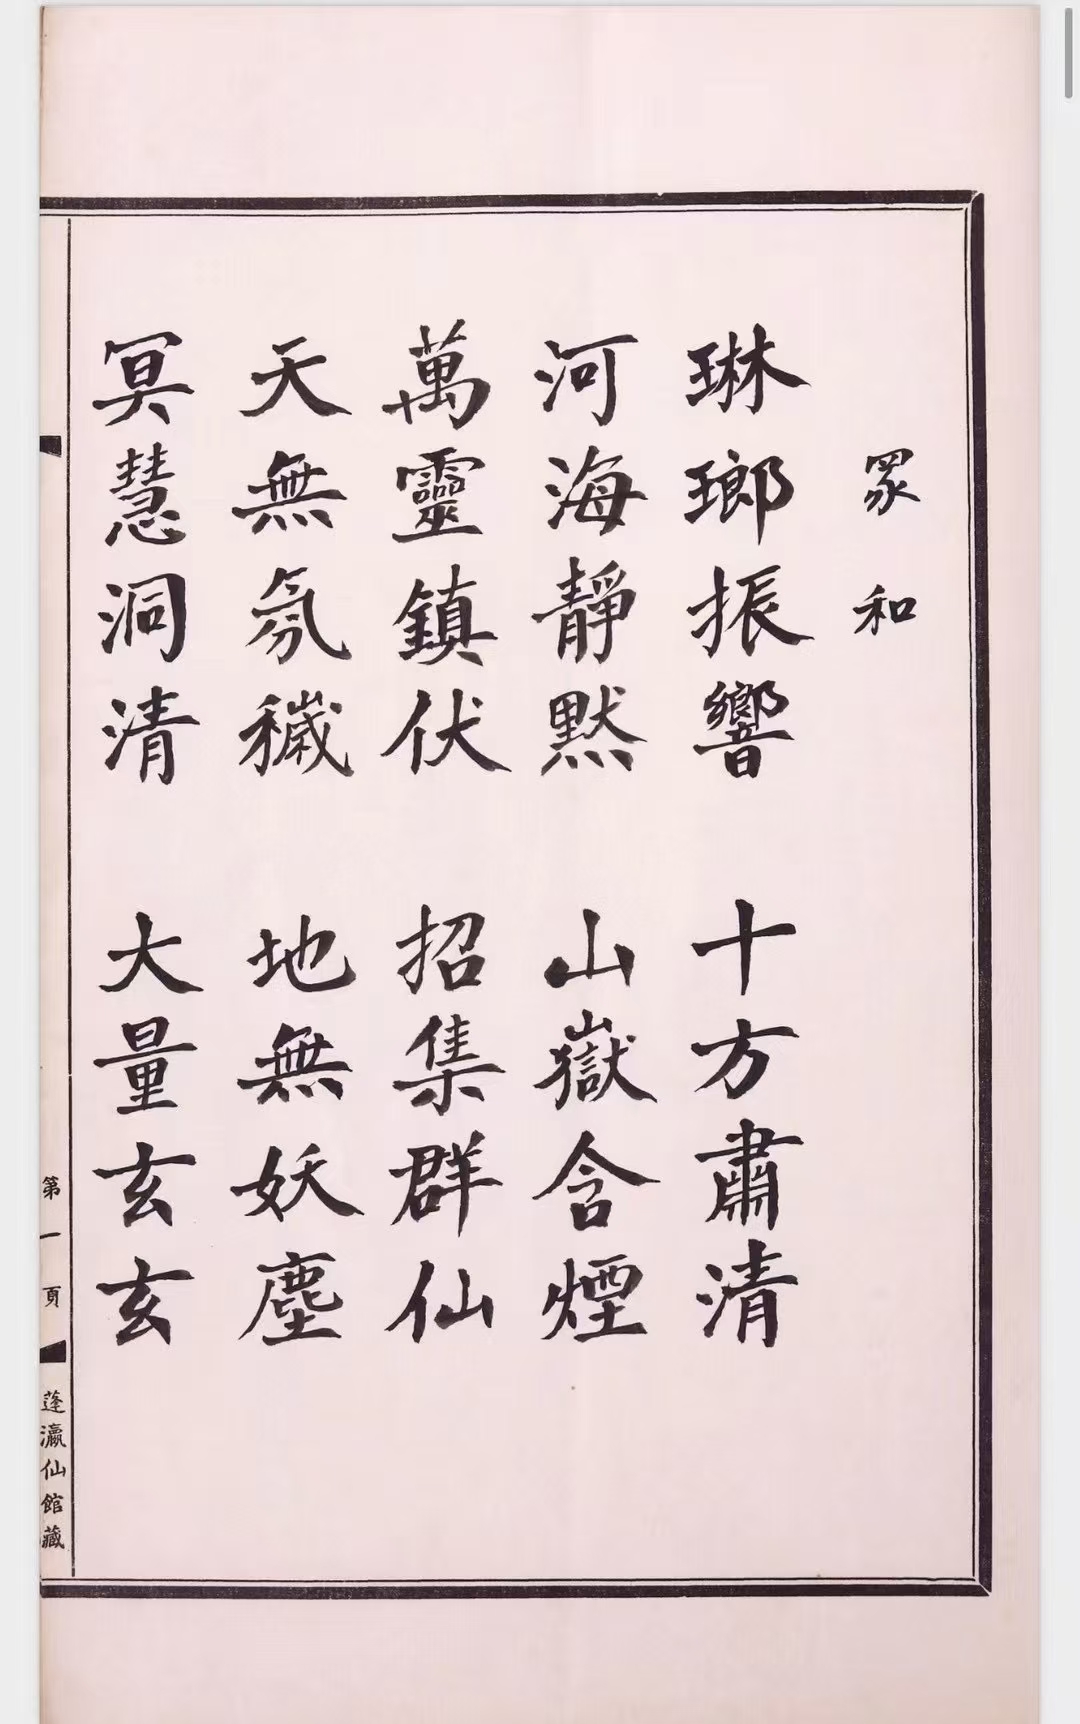 眾和
琳瑯振響 十方肅清
河海靜默 山嶽含煙
萬靈鎮伏 招集群仙
天無氛穢 地無妖塵
冥慧洞清 大量玄玄
第一頁
蓬瀛仙館藏